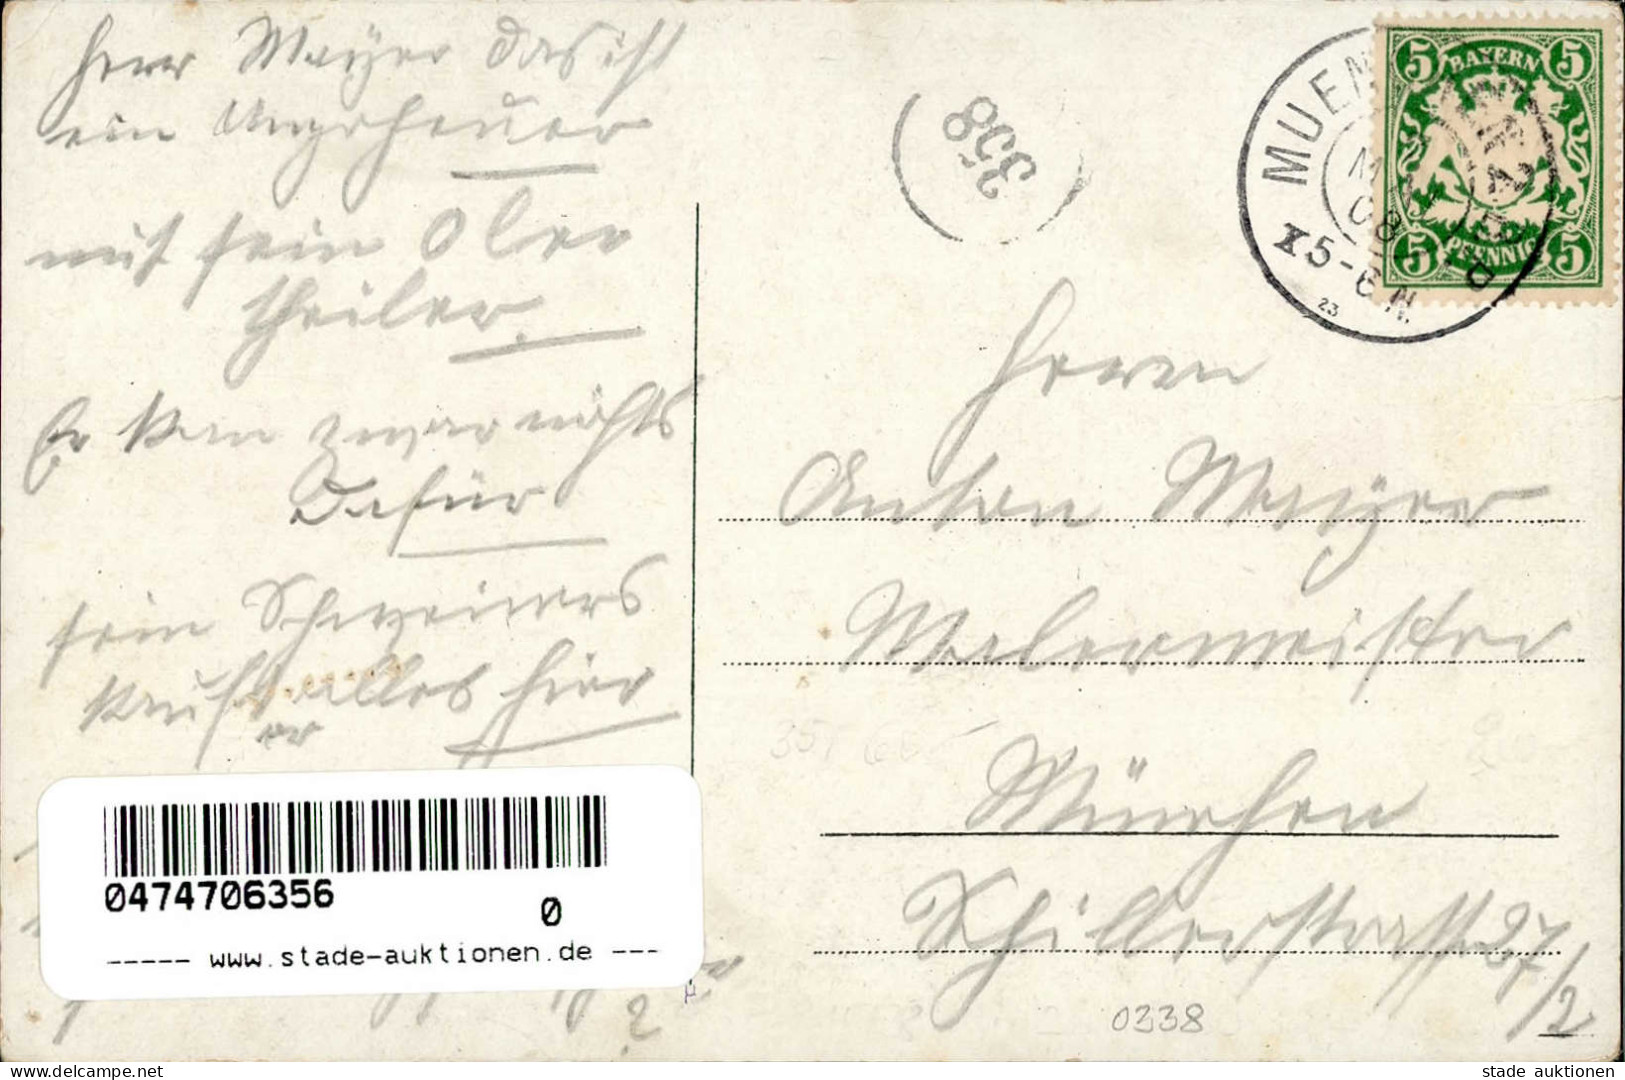 Herr Mayer das ist
ein Ungeheuer
mit sein Ober
theiler.
Er kan zwar nichts
Dafür
sein Schweiners
kauft er alles hier
358
MUENCHEN
MAI
08
5-6 N.
23
5 BAYERN 5
5 PFENNIG 5
Herrn
Anton Mayer
Malermeister
München
Schillerstrasse 27/2
0338
0474706356
0
----- www.stade-auktionen.de ---
stade auktionen